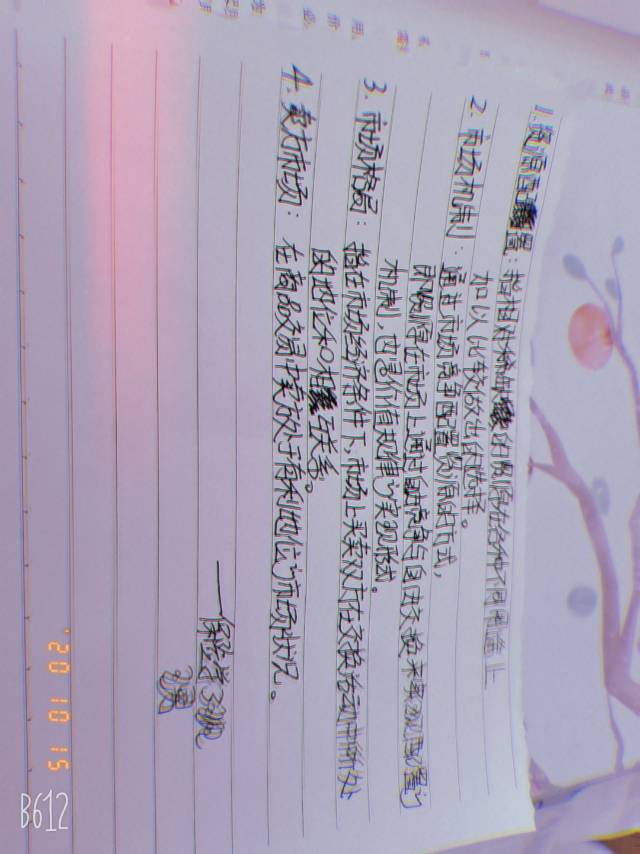 1.资源配置：指相对稀缺的资源在各种不同用途上
加以比较做出的选择。
2.市场机制：通过市场竞争配置资源的方式，
即资源在市场上通过自由竞争与自由交换来实现配置的
机制，也是价值规律的实现形式。
3.市场格局：指在市场经济条件下，市场上买卖双方在交换活动中所处
的地位和相互关系。
4.卖方市场：在商品交易中卖方处于有利地位的市场状况。
——保险学3班
'20 10 15
B612